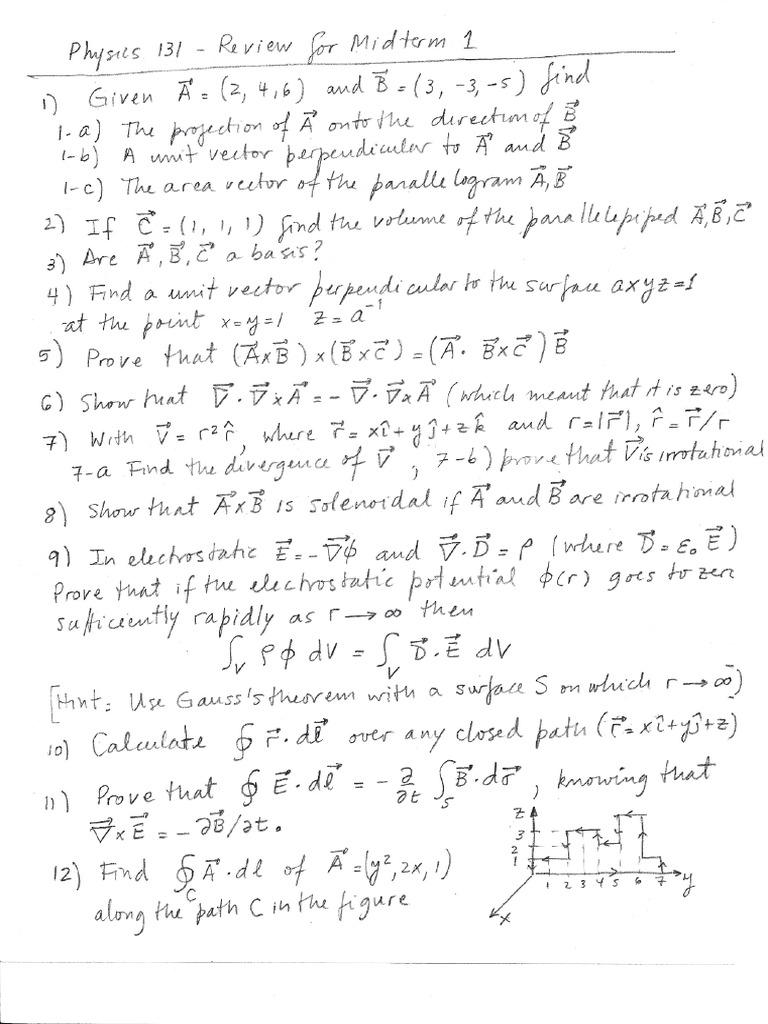 Physics 131 - Review for Midterm 1
1) Given A⃗ = (2, 4, 6) and B⃗ = (3, -3, -5) find
1-a) The projection of A⃗ onto the direction of B⃗
1-b) A unit vector perpendicular to A⃗ and B⃗
1-c) The area vector of the parallelogram A⃗, B⃗
2) If C⃗ = (1, 1, 1) find the volume of the parallelepiped A⃗, B⃗, C⃗
3) Are A⃗, B⃗, C⃗ a basis?
4) Find a unit vector perpendicular to the surface axyz=1
at the point x=y=1 z=a⁻¹
5) Prove that (A⃗×B⃗)×(B⃗×C⃗) = (A⃗· B⃗×C⃗)B⃗
6) Show that ∇⃗·∇⃗×A⃗ = -∇⃗·∇⃗×A⃗ (which meant that it is zero)
7) With V⃗ = r² r̂, where r⃗ = xî+yĵ+zk̂ and r=|r⃗|, r̂ = r⃗/r
7-a Find the divergence of V⃗, 7-b) prove that V⃗ is irrotational
8) Show that A⃗×B⃗ is solenoidal if A⃗ and B⃗ are irrotational
9) In electrostatic E⃗ = -∇⃗ϕ and ∇⃗·D⃗ = ρ (where D⃗ = ε₀ E⃗)
Prove that if the electrostatic potential ϕ(r) goes to zero
sufficiently rapidly as r → ∞ then
∫_V ρϕ dV = ∫_V D⃗·E⃗ dV
[Hint: Use Gauss's theorem with a surface S on which r → ∞)
10) Calculate ∮ r⃗·dl⃗ over any closed path (r⃗ = xî+yĵ+z)
11) Prove that ∮ E⃗·dl⃗ = -∂/∂t ∫_S B⃗·dσ⃗, knowing that
∇⃗×E⃗ = -∂B⃗/∂t.
12) Find ∮_C A⃗·dl of A⃗ = (y², 2x, 1)
along the path C in the figure
z
3
2
1
1 2 3 4 5 6 7 y
x